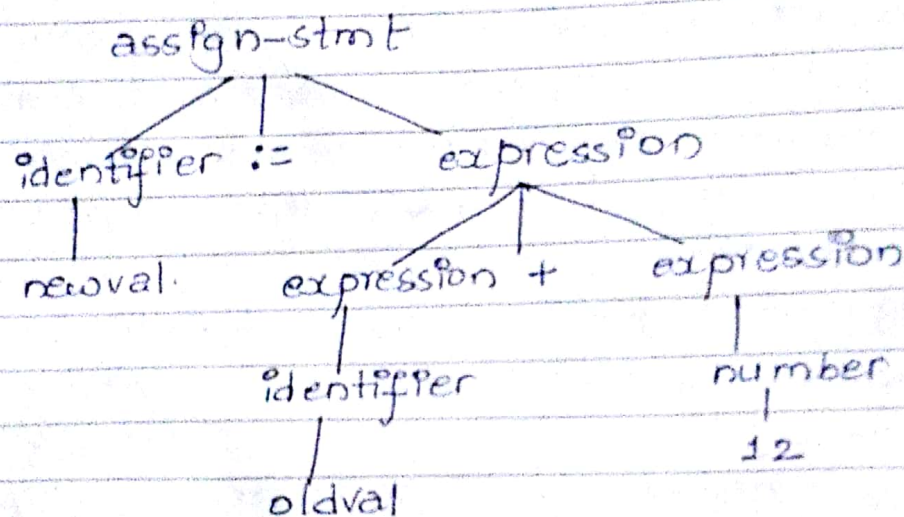 assign-stmt
identifier := expression
newval. expression + expression
identifier number
12
oldval